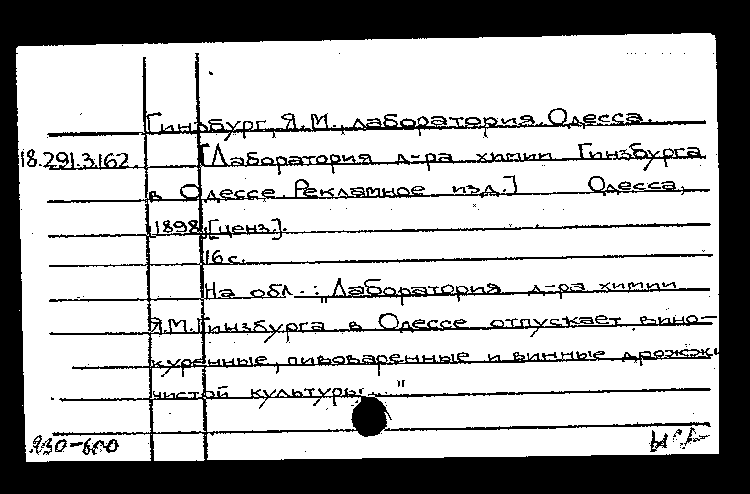 Гинзбург, Я.М., лаборатория. Одесса.
18.291.3.162. [Лаборатория д-ра химии Гинзбурга
в Одессе. Рекламное изд.] Одесса,
1898 [ценз.].
16 с.
На обл.: "Лаборатория д-ра химии
Я.М. Гинзбурга в Одессе отпускает вино-
куренные, пивоваренные и винные дрожжи
чистой культуры..."